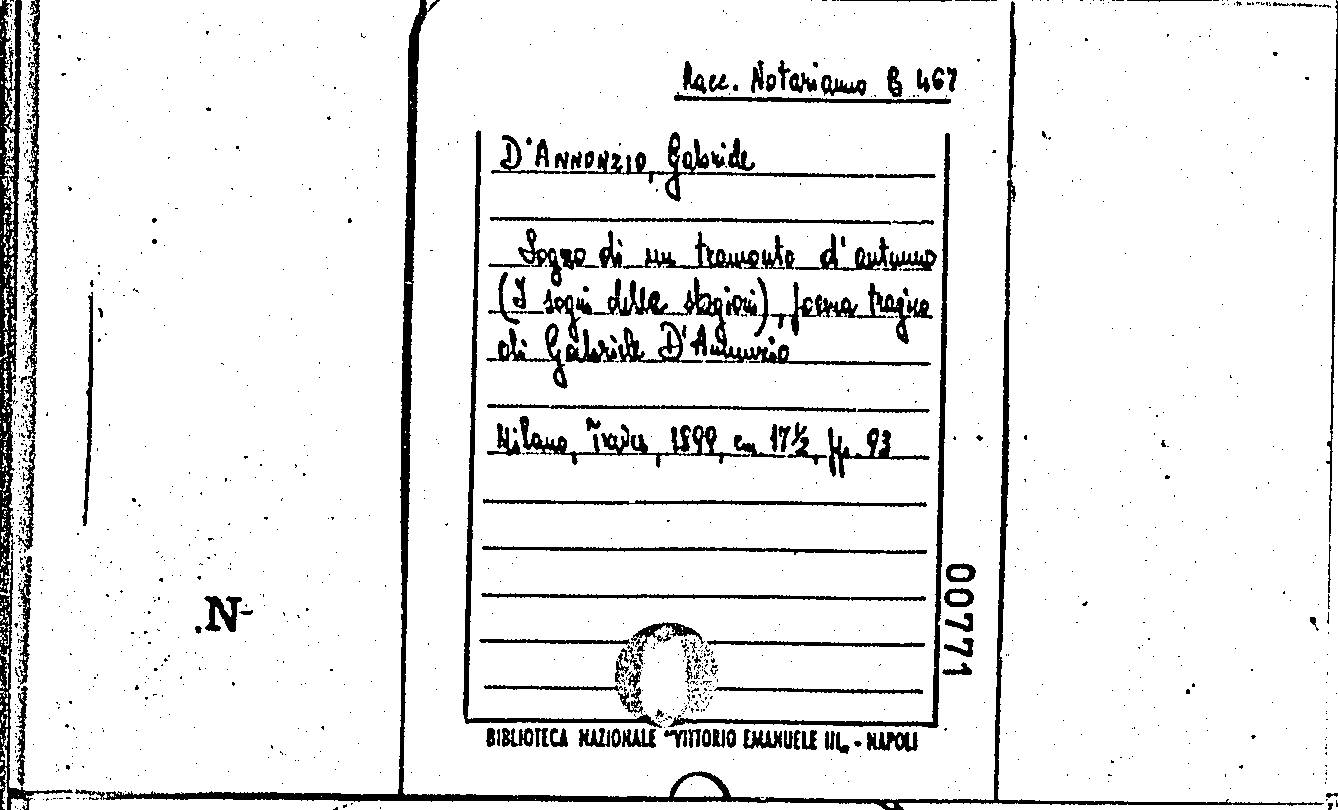 Racc. Notarianno B 467
D'ANNUNZIO, Gabriele
Sogno di un tramonto d'autunno
(I sogni delle stagioni), poema tragico
di Gabriele D'Annunzio
Milano, Treves, 1899, cm 17½, pp. 93
00771
.N-
BIBLIOTECA NAZIONALE "VITTORIO EMANUELE III„ - NAPOLI